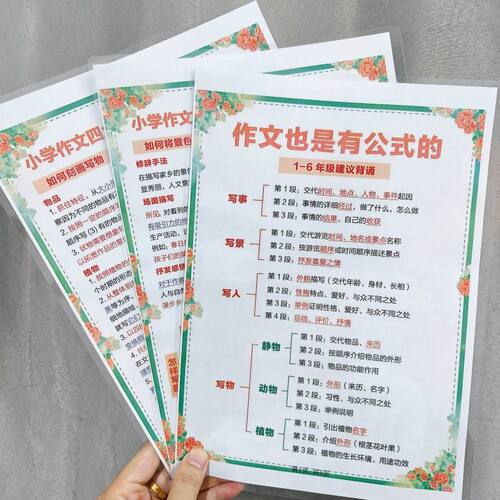 小学作文四
如何刻画写物
物品
1. 抓住特征，从大小
察因为不同的物品有不
2. 按照一定的顺序
顺序或(3)有的物
3. 状物需要想象
以拓宽作品的意
植物
1. 按照植物的
个时期的形态
2. 从整体到
细地描绘
就写它们
3. 以四
小学作文
如何将景色
修辞手法
在描写家乡的景
显秀丽，人文景
场面描写
所见，对看到的
有吸引力的
生产活动，以
例如，春日
孩子们的
抒发感想
对于作
人与自
漫步乡
怎样写景
作文也是有公式的
1-6年级建议背诵
写事
第1段：交代时间、地点、人物、事件起因
第2段：事情的详细经过，做了什么，怎么做
第3段：事情的结果、自己的收获
写景
第1段：交代游览时间、地名或景点名称
第2段：按游览顺序或时间顺序描述景点
第3段：抒发喜爱之情
写人
第1段：外貌描写（交代年龄、身材、长相）
第2段：性格特点、爱好、与众不同之处
第3段：举例证明性格、爱好、与众不同之处
第4段：总结、评价、抒情
写物
静物
第1段：交代物品、来历
第2段：按顺序介绍物品的外形
第3段：物品的功能作用
动物
第1段：外形（来历、名字）
第2段：习性、与众不同之处
第3段：举例说明
植物
第1段：引出植物名字
第2段：介绍外形（根茎花叶果）
第3段：植物的生长环境、用途功效